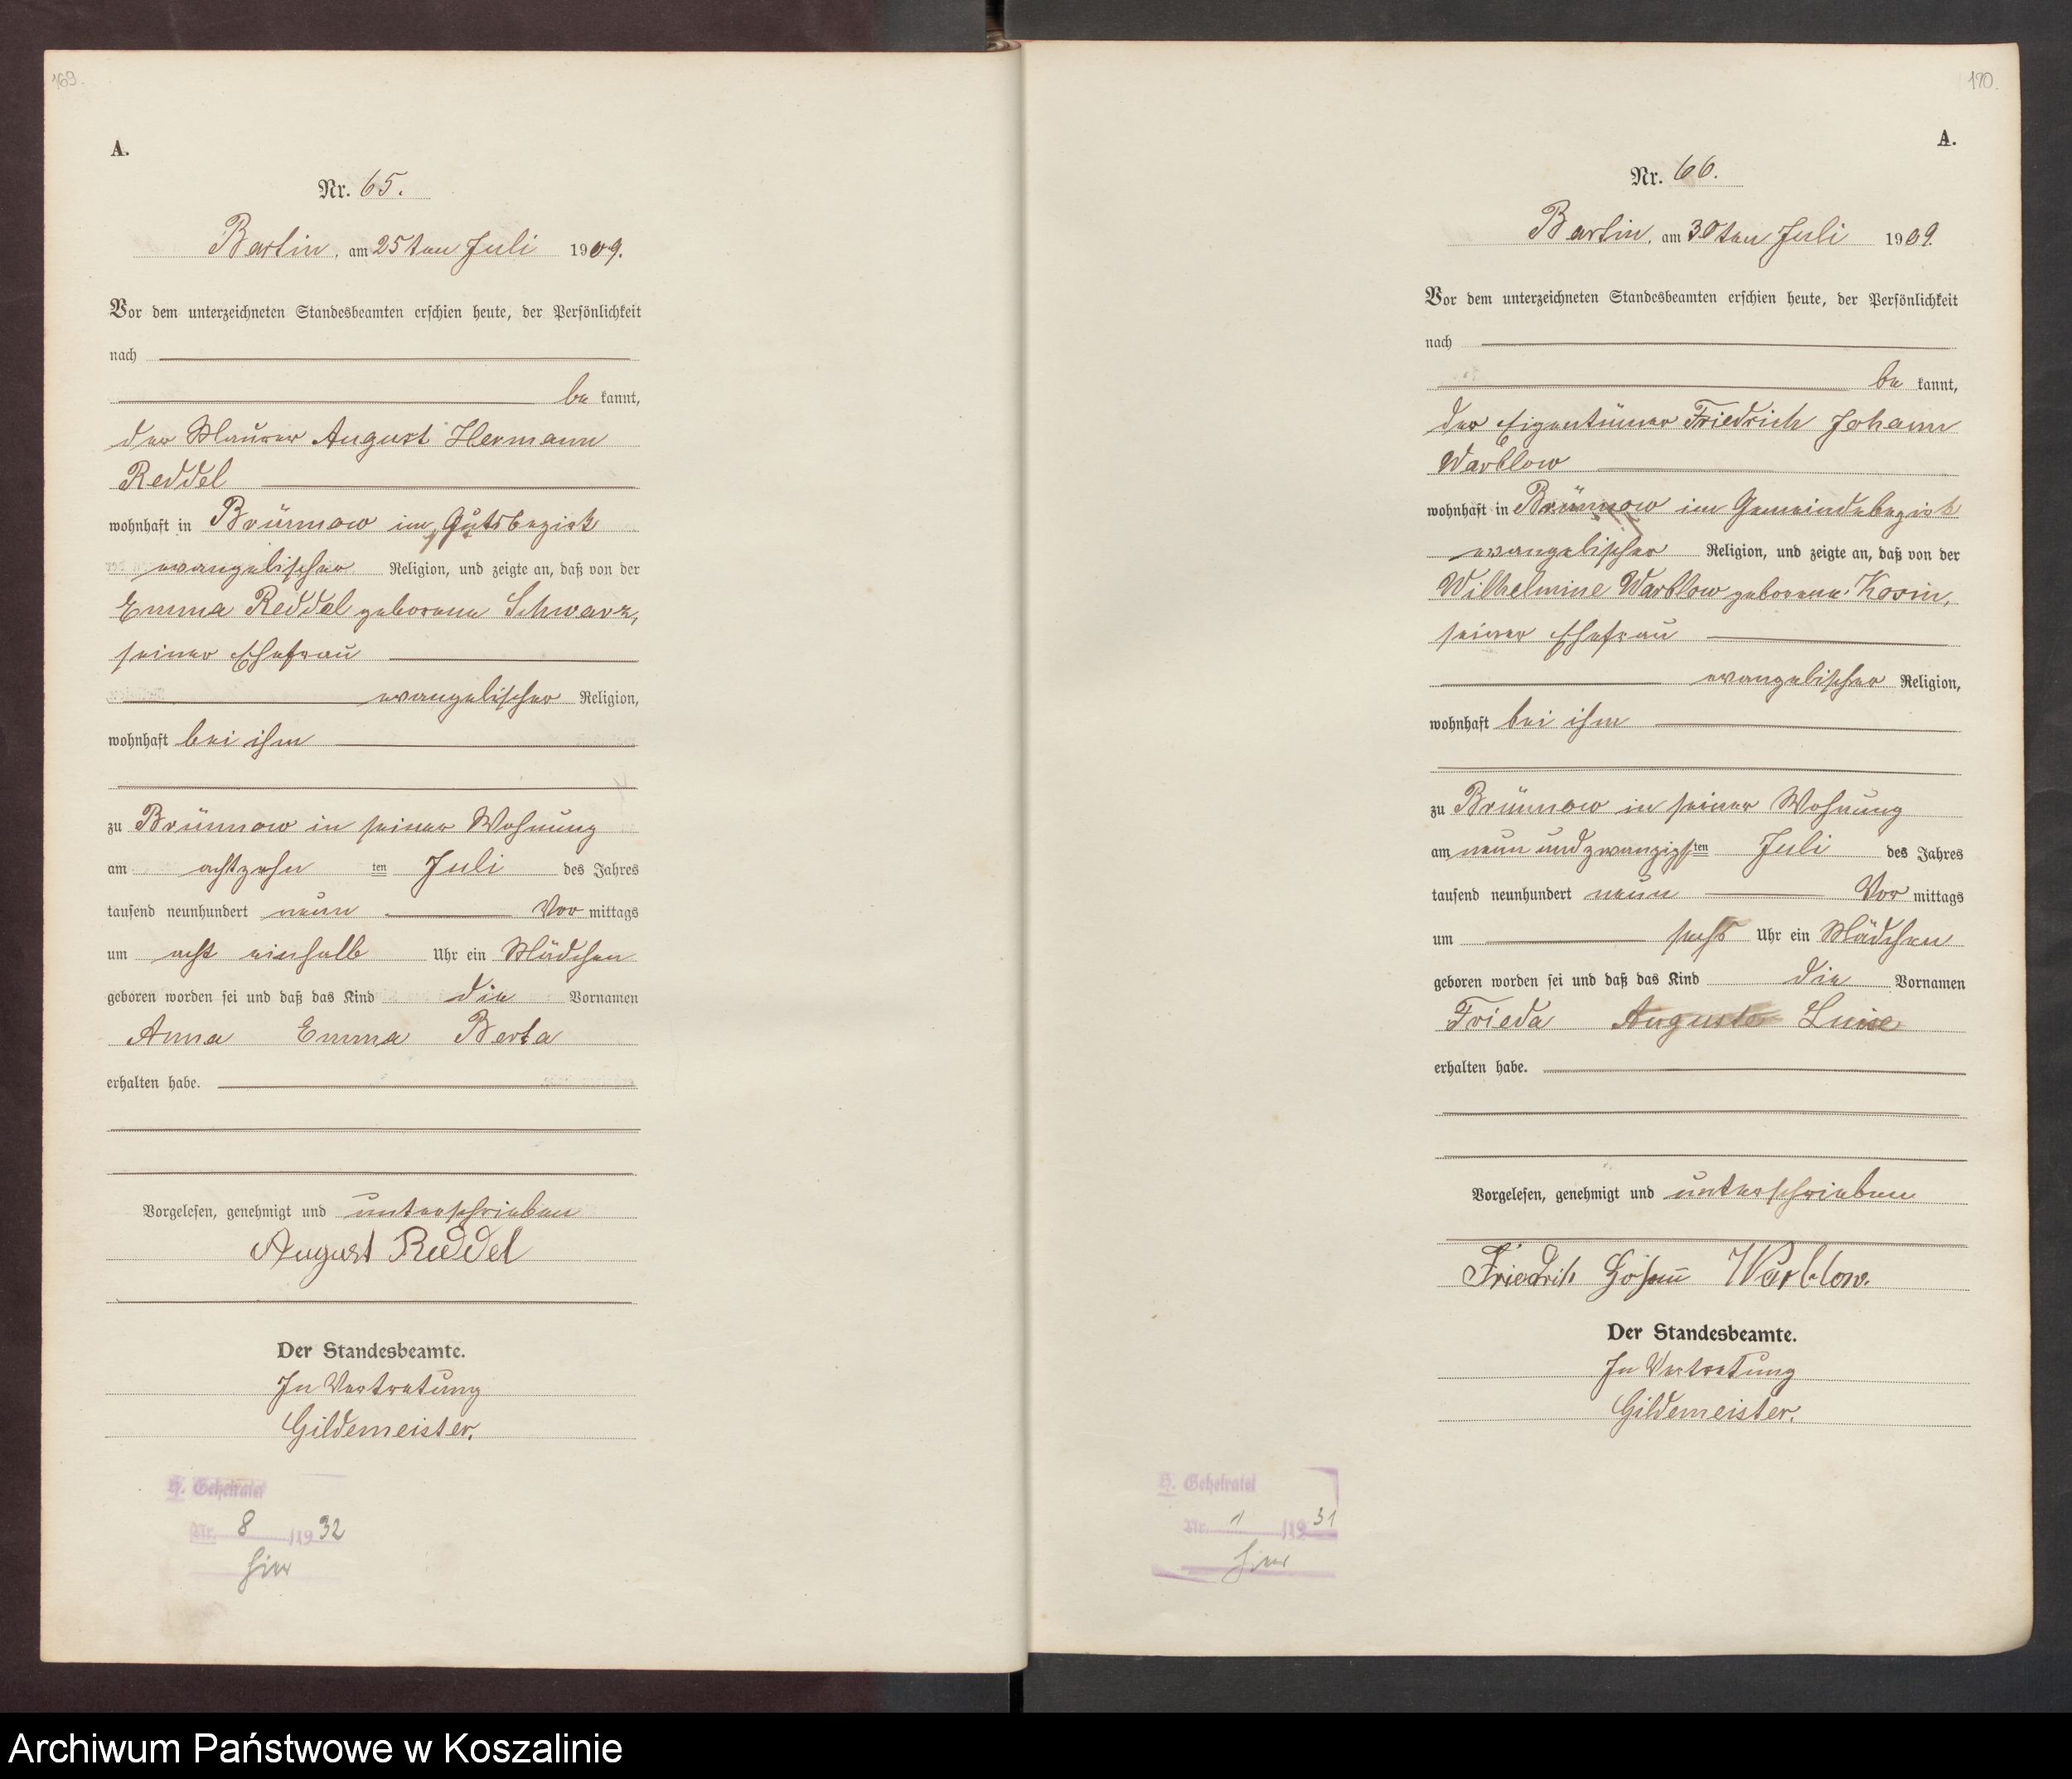 169.
A.
Nr. 65.
Bartin, am 25ten Juli 1909.
Vor dem unterzeichneten Standesbeamten erschien heute, der Persönlichkeit
nach
be kannt,
der Maurer August Hermann
Reddel
wohnhaft in Brünnow im Gutsbezirk
evangelischer Religion, und zeigte an, daß von der
Emma Reddel geborene Schwarz,
seiner Ehefrau
evangelischer Religion,
wohnhaft bei ihm
zu Brünnow in seiner Wohnung
am achtzehn ten Juli des Jahres
tausend neunhundert neun Vor mittags
um acht einhalb Uhr ein Mädchen
geboren worden sei und daß das Kind die Vornamen
Anna Emma Berta
erhalten habe.
Vorgelesen, genehmigt und unterschrieben
August Reddel
Der Standesbeamte.
In Vertretung
Gildemeister.
H. Geheiratet
Nr. 8 /19 32
hier
170.
A.
Nr. 66.
Bartin, am 30ten Juli 1909.
Vor dem unterzeichneten Standesbeamten erschien heute, der Persönlichkeit
nach
be kannt,
der Eigentümer Friedrich Johann
Warblow
wohnhaft in Brünnow im Gemeindebezirk
evangelischer Religion, und zeigte an, daß von der
Wilhelmine Warblow geborene Korin,
seiner Ehefrau
evangelischer Religion,
wohnhaft bei ihm
zu Brünnow in seiner Wohnung
am neunundzwanzigsten Juli des Jahres
tausend neunhundert neun Vor mittags
um sechs Uhr ein Mädchen
geboren worden sei und daß das Kind die Vornamen
Frieda Auguste Luise
erhalten habe.
Vorgelesen, genehmigt und unterschrieben
Friedrich Johann Warblow.
Der Standesbeamte.
In Vertretung
Gildemeister.
H. Geheiratet
Nr. 1 /19 31
hier
Archiwum Państwowe w Koszalinie